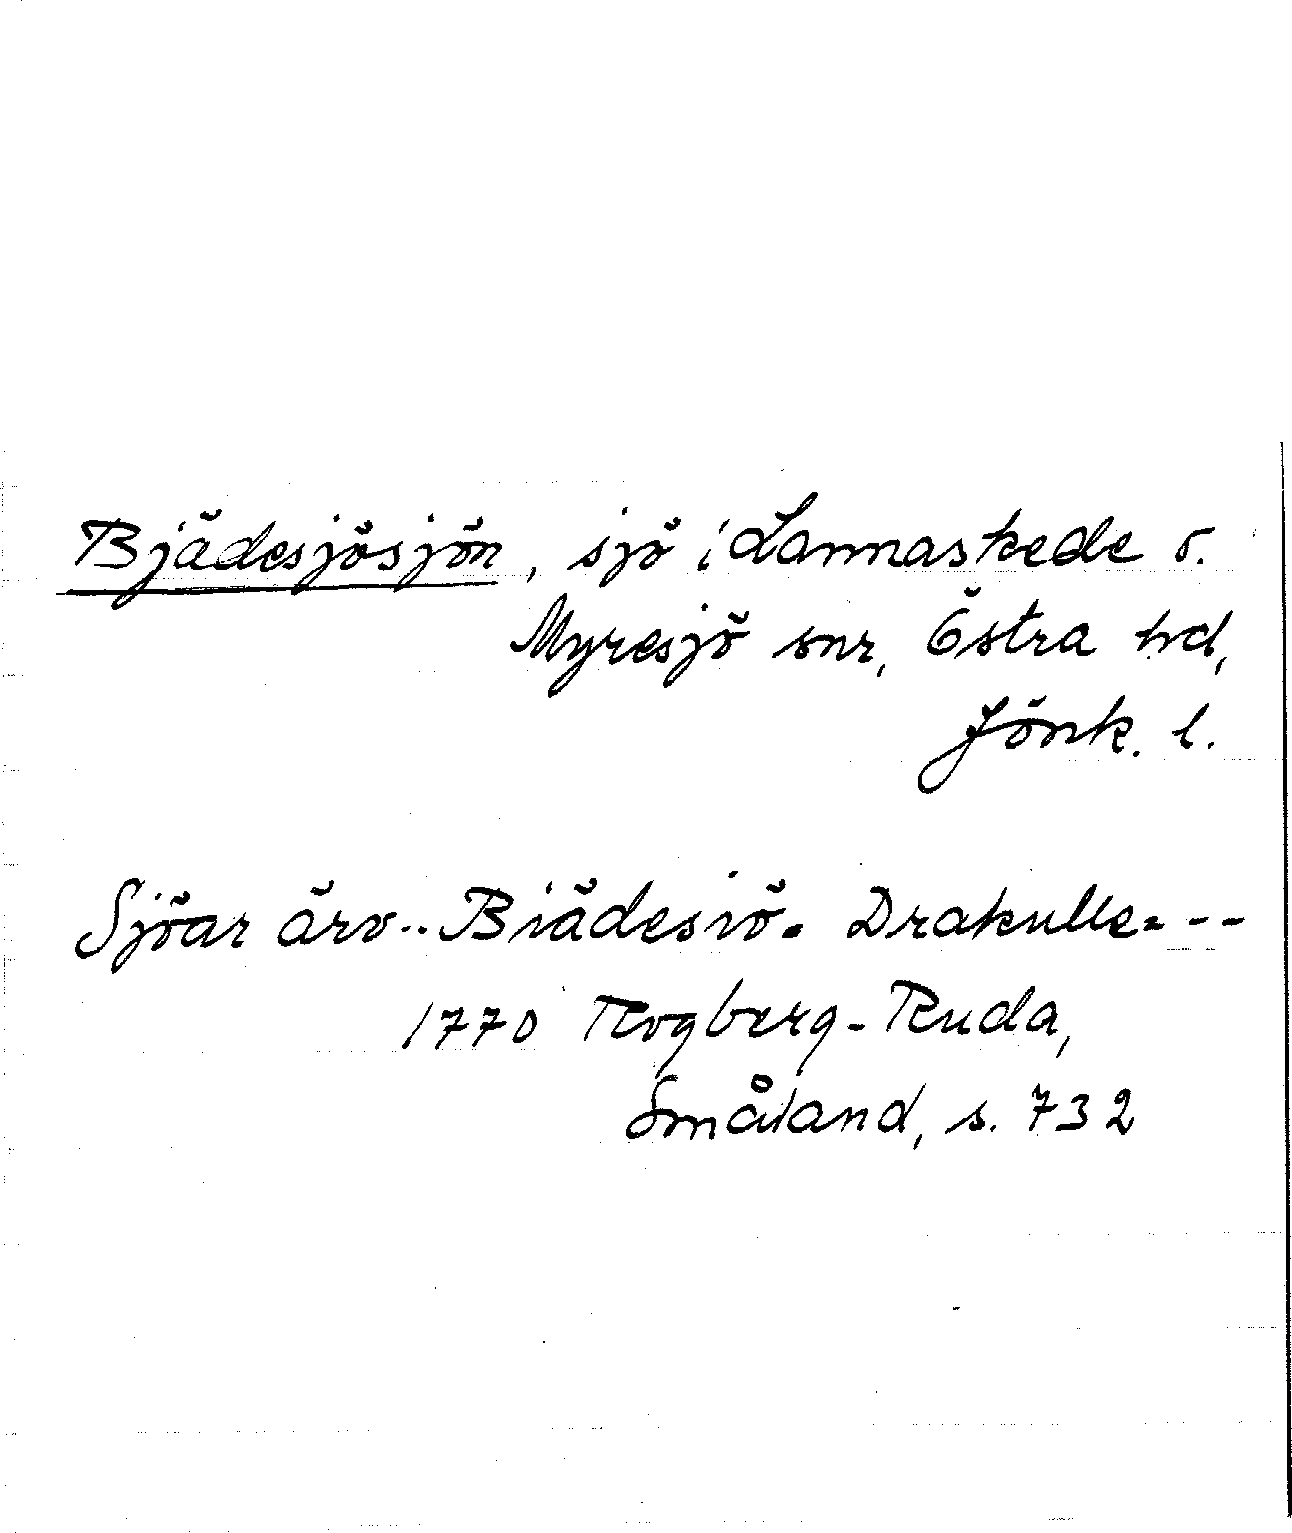 Bjädesjösjön, sjö i Lannaskede o.
Myresjö snr, Östra hd,
Jönk. l.
Sjöar äro.. Biädesiö. Drakulle. --
1770 Rogberg-Ruda,
Småland, s. 732